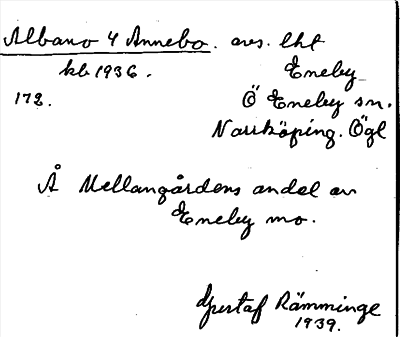 Albano 4 Annebo. avs. lht
kb 1936. Eneby
172. Ö Eneby sn.
Norrköping. Ögl
Å Mellangårdens andel av
Eneby mo.
Gustaf Rämminge
1939.